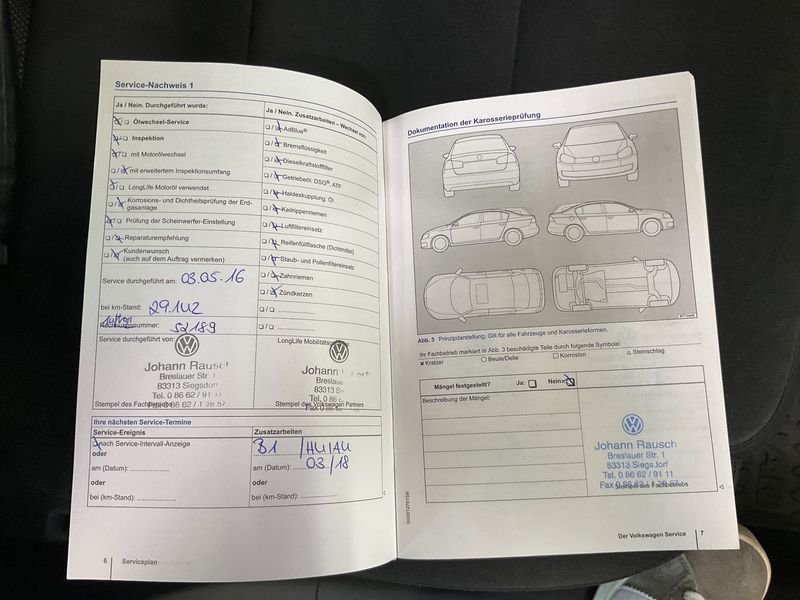 Service-Nachweis 1
Ja / Nein. Durchgeführt wurde:
Ölwechsel-Service
Inspektion
mit Motorölwechsel
mit erweitertem Inspektionsumfang
LongLife Motoröl verwendet
Korrosions- und Dichtheitsprüfung der Erd-
gasanlage
Prüfung der Scheinwerfer-Einstellung
Reparaturempfehlung
Kundenwunsch
(auch auf dem Auftrag vermerken)
Service durchgeführt am: 03.05.16
bei km-Stand: 29.142
52189
Service durchgeführt von:
Johann Rausch
Breslauer Str. 1
83313 Siegsdorf
Tel. 0 86 62 / 91 11
Stempel des Fachbetriebs
Ja / Nein. Zusatzarbeiten – Wechsel von:
AdBlue®
Bremsflüssigkeit
Dieselkraftstofffilter
Getriebeöl: DSG®, ATF
Haldexkupplung: Öl
Keilrippenriemen
Luftfiltereinsatz
Reifenfüllflasche (Dichtmittel)
Staub- und Pollenfiltereinsatz
Zahnriemen
Zündkerzen
LongLife
Johann
Breslau
83313
Tel. 0 86
Stempel des Volkswagen Partners
Ihre nächsten Service-Termine
Service-Ereignis
nach Service-Intervall-Anzeige
oder
am (Datum): ....................
oder
bei (km-Stand): ....................
Zusatzarbeiten
B1 / HU/AU
am (Datum): 03/18
oder
bei (km-Stand): ....................
6 Serviceplan
Dokumentation der Karosserieprüfung
Abb. 3 Prinzipdarstellung. Gilt für alle Fahrzeuge und Karosserieformen.
Ihr Fachbetrieb markiert in Abb. 3 beschädigte Teile durch folgende Symbole.
× Kratzer ○ Beule/Delle □ Korrosion △ Steinschlag
Mängel festgestellt? Ja: Nein:
Beschreibung der Mängel:
Johann Rausch
Breslauer Str. 1
83313 Siegsdorf
Tel. 0 86 62 / 91 11
Stempel des Fachbetriebs
Der Volkswagen Service 7